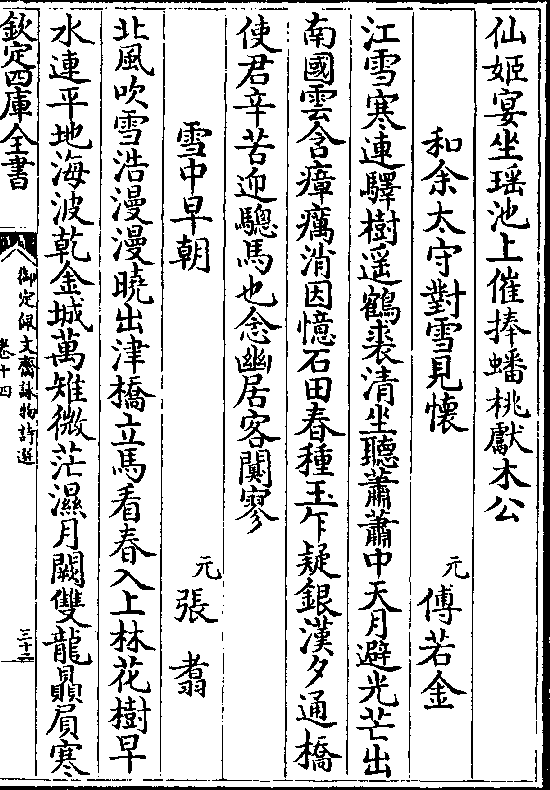 仙姬宴坐瑶池上催捧蟠桃獻木公
和余太守對雪見懐
元
傅若金
江雪寒連驛樹遥鶴裘清坐聽蕭蕭中天月避光芒出
南國雲含瘴癘消因憶石田春種玉乍疑銀漢夕通橋
使君辛苦迎驄馬也念幽居客闃寥
雪中早朝
元
張翥
北風吹雪浩漫漫曉出津橋立馬看春入上林花樹早
水連平地海波乾金城萬雉微茫濕月闕雙龍贔屓寒
欽定四庫全書
御定佩文齋詠物詩選
卷十四
三十二